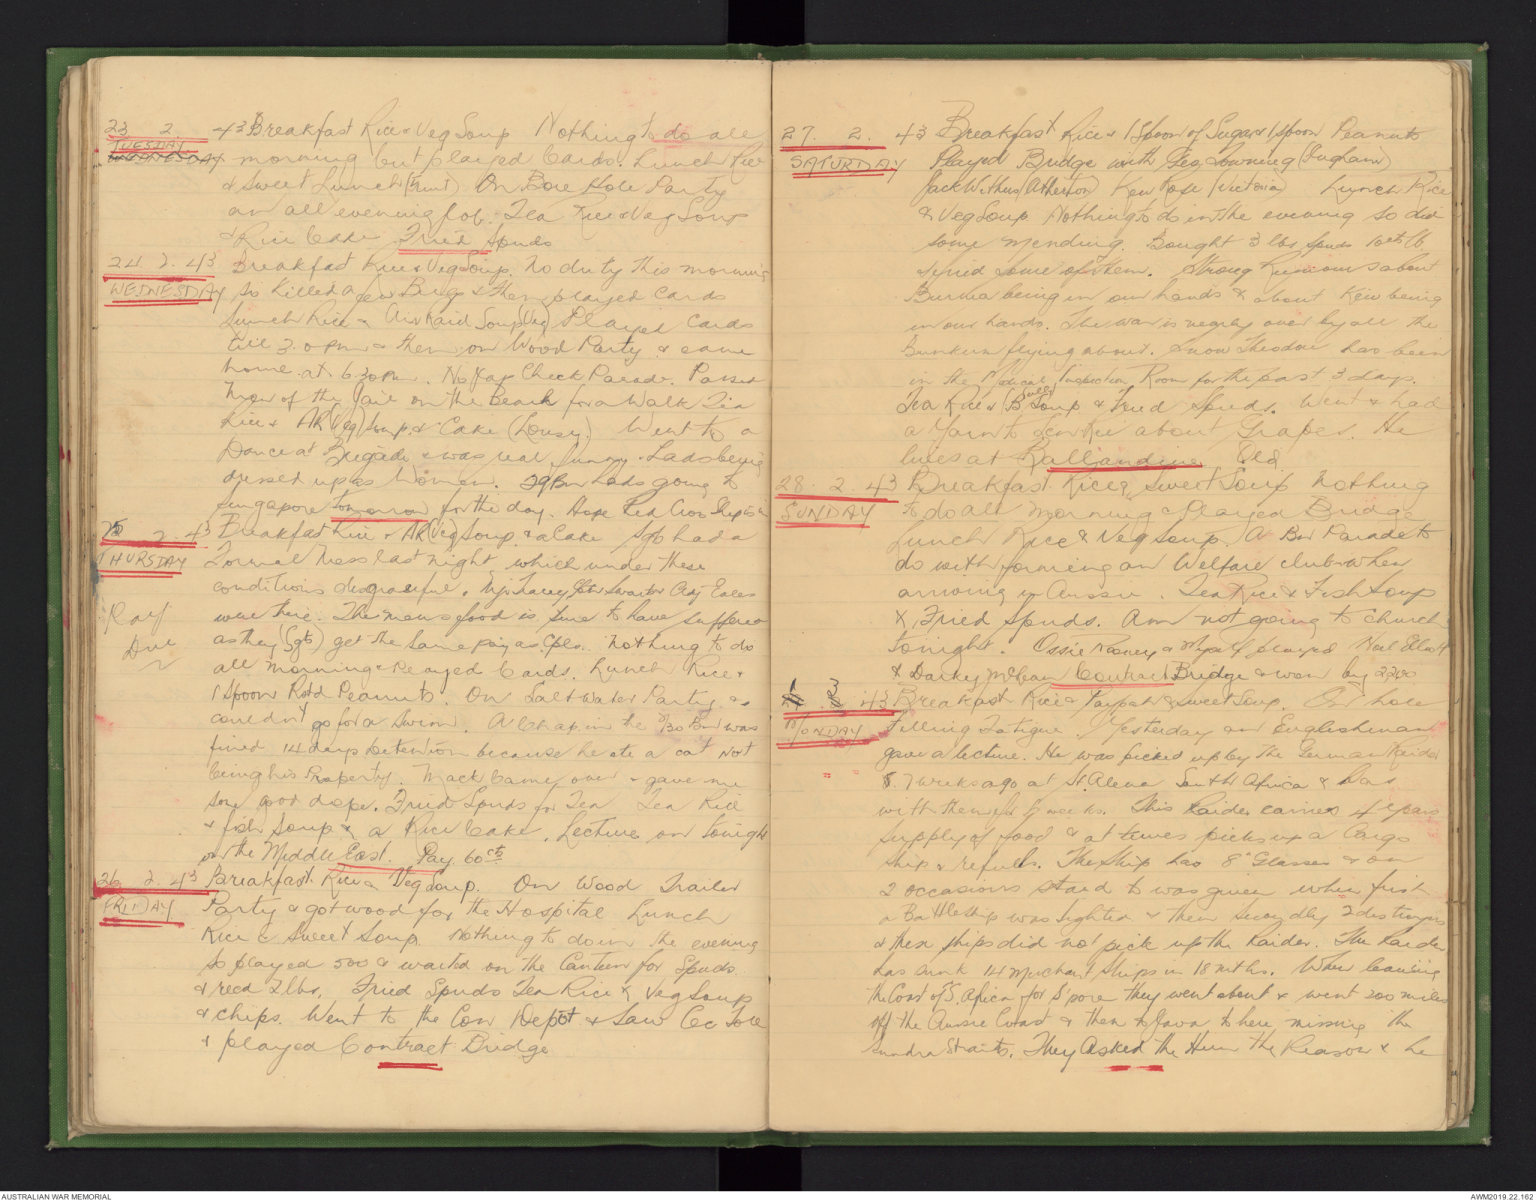 23 2. 43 Breakfast Rice & Veg Soup Nothing to do all
TUESDAY
WEDNESDAY morning but played Cards. Lunch Rice
& Sweet Lunch (Mint) On Bore Hole Party
an all evening job. Tea Rice & Veg Soup
& Rice Cake Fried Spuds
24. 2. 43 Breakfast Rice & Veg Soup. No duty this morning
WEDNESDAY so killed a few Bugs & then played Cards
Lunch Rice & Air Raid Soup (Veg) Played Cards
till 3.0 pm & then on Wood Party & came
home at 6.30 pm. No Jap Check Parade. Passed
the Jail on the Beach for a Walk Tea
Rice & AR (Veg) Soup & Cake (Lousy.) Went to a
Dance at Brigade & was real funny Lads being
dressed up as Women. 29 Bn Lads going to
Singapore tomorrow for the day. Hope Red Cross Ship is in
25 2. 43 Breakfast Rice & AR (Veg) Soup & a Cake Sgts had a
THURSDAY Formal Mess last night, which under these
conditions disgraceful. Adj Eales
Ray were there. The mens food is sure to have suffered
Due as they (Sgts) get the same pay as Cpls. Nothing to do
all morning & Played Cards. Lunch Rice &
1 Spoon Rstd Peanuts. On Salt Water Party &
couldn't go for a Swim. A Chap in the 2/30 Bn was
fined 14 days Detention because he ate a cat not
being his Property. Mack Came over & gave me
some good dope. Fried Spuds for Tea Tea Rice
& fish Soup & a Rice Cake. Lecture on tonight
on the Middle East. Pay 60 cts
26. 2. 43 Breakfast Rice & Veg Soup. On Wood Trailer
FRIDAY Party & got wood for the Hospital Lunch
Rice & Sweet Soup. Nothing to do in the evening
so played 500 & waited on the Canteen for Spuds
& recd 2 lbs. Fried Spuds Tea Rice & Veg Soup
& chips. Went to the Con Depot & Saw
& played Contract Bridge
27. 2. 43 Breakfast Rice & 1 Spoon of Sugar 1 spoon Peanuts
SATURDAY Played Bridge with Geo Downing (England)
Jack Withers (Atherton) Ken Rose (Victoria) Lunch Rice
& Veg Soup Nothing to do in the evening so did
some mending. Bought 3 lbs Spuds 10cts lb
& fried some of them. Strong Rumours about
Burma being in our hands & about Kiev being
in our hands. The war is nearly over by all the
Bunkum flying about. Snow Theodore has been
in the Medical Inspection Room for the past 3 days.
Tea Rice & (Bully) B Soup & Fried Spuds. Went & had
a Yarn to about Grapes. He
lives at Ballandine Qld
28. 2. 43 Breakfast. Rice & Sweet Soup Nothing
SUNDAY to do all morning & Played Bridge
Lunch Rice & Veg Soup. A Bn Parade to
do with forming an Welfare Club when
arriving in Aussie. Tea Rice & Fish Soup
& Fried Spuds. Am not going to church
tonight. Ossie Rooney & Myself played Neil Elliott
& Darkey McLean Contract Bridge & won by 2200
43 Breakfast Rice & Pap & Sweet Soup. Bore hole
MONDAY Filling Fatigue. Yesterday an Englishman
gave a lecture. He was picked up by the German Raider
7 weeks ago at St. Alena South Africa & was
with them weeks. This Raider carries 4 years
supply of food & at times picks up a Cargo
ship & refuels. The ship has 8" Glasses & on
2 occasions stand to was given when first
a Battleship was Sighted & then Secondly 2 destroyers
& these ships did not pick up the Raider. The Raider
has sunk 14 Merchant Ships in 18 mths. When leaving
the Coast of S. Africa for S'pore they went about & went 200 miles
off the Aussie Coast & then to Java to here missing the
Sundra Straits. They Asked the Hun the Reason & he
AUSTRALIAN WAR MEMORIAL
AWM2019.22.162